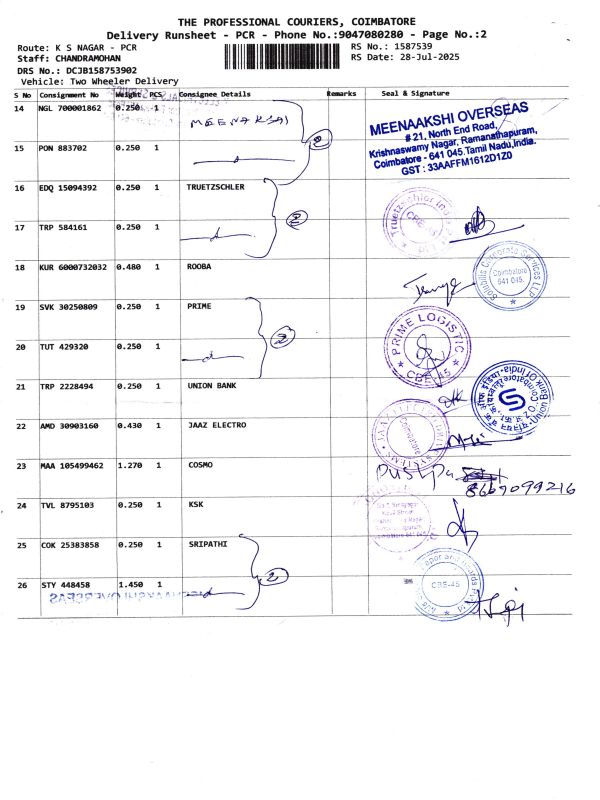 THE PROFESSIONAL COURIERS, COIMBATORE
Delivery Runsheet - PCR - Phone No.:9047080280 - Page No.:2
Route: K S NAGAR - PCR
RS No.: 1587539
Staff: CHANDRAMOHAN
RS Date: 28-Jul-2025
DRS No.: DCJB158753902
Vehicle: Two Wheeler Delivery
S No Consignment No Weight PCS Consignee Details Remarks Seal & Signature
14 NGL 700001862 0.250 1 MEENAKSAI
MEENAAKSHI OVERSEAS
# 21, North End Road,
Krishnaswamy Nagar, Ramanathapuram,
Coimbatore - 641 045.Tamil Nadu,India.
GST : 33AAFFM1612D1Z0
15 PON 883702 0.250 1
2
16 EDQ 15094392 0.250 1 TRUETZSCHLER
2
17 TRP 584161 0.250 1
CBE-45
18 KUR 6000732032 0.480 1 ROOBA
Coimbatore
641 045.
19 SVK 30250809 0.250 1 PRIME
2
PRIME LOGISTIC
CBE-45
20 TUT 429320 0.250 1
21 TRP 2228494 0.250 1 UNION BANK
Union Bank Of India
22 AMD 30903160 0.430 1 JAAZ ELECTRO
Coimbatore
23 MAA 105499462 1.270 1 COSMO
Pushpa
8667099216
24 TVL 8795103 0.250 1 KSK
25 COK 25383858 0.250 1 SRIPATHI
2
26 STY 448458 1.450 1
CBE-45
MEENAAKSHI OVERSEAS